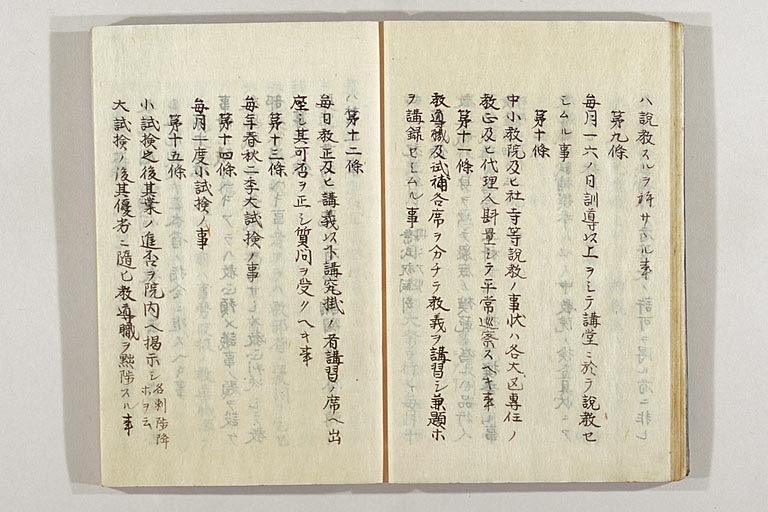 ハ説教スルヲ許サヽル事
第九條
毎月一六ノ日訓導以上ヲシテ講堂ニ於テ説教セ
シムル事
第十條
中小教院及ヒ社寺等説教ノ事状ハ各大区専任ノ
教正及ヒ代理人斟量シテ平常巡察スヘキ事
第十一條
教導職及試補各席ヲ分チテ教義ヲ講習シ兼題ホ
ヲ講録セシムル事
第十二條
毎日教正及ヒ講義以下講究掛ノ者講習ノ席ヘ出
座シ其可否ヲ正シ質問ヲ受クヘキ事
第十三條
毎年春秋二季大試検ノ事
第十四條
毎月一度小試検ノ事
第十五條
小試検之後其業ノ進否ヲ院内ヘ掲示シ
大試検ノ後其優劣ニ随ヒ教導職ヲ黜陟スル事